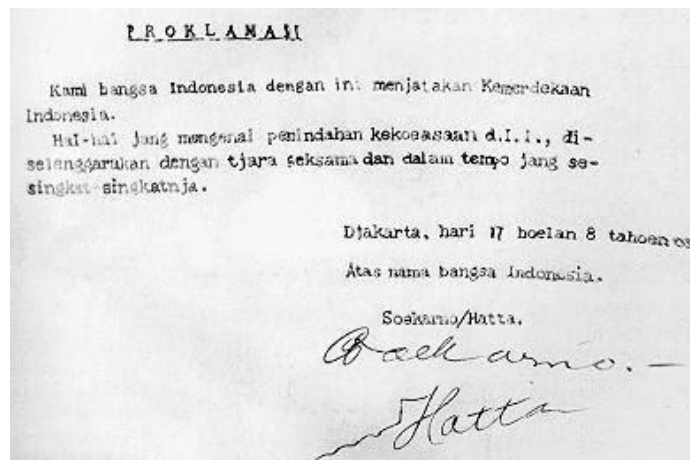 P R O K L A M A S I
Kami bangsa Indonesia dengan ini menjatakan Kemerdekaan
Indonesia.
Hal-hal jang mengenai pemindahan kekoeasaan d.l.l., di-
selenggarakan dengan tjara seksama dan dalam tempo jang se-
singkat-singkatnja.
Djakarta, hari 17 boelan 8 tahoen 05
Atas nama bangsa Indonesia.
Soekarno/Hatta.
Soekarno.—
Hatta